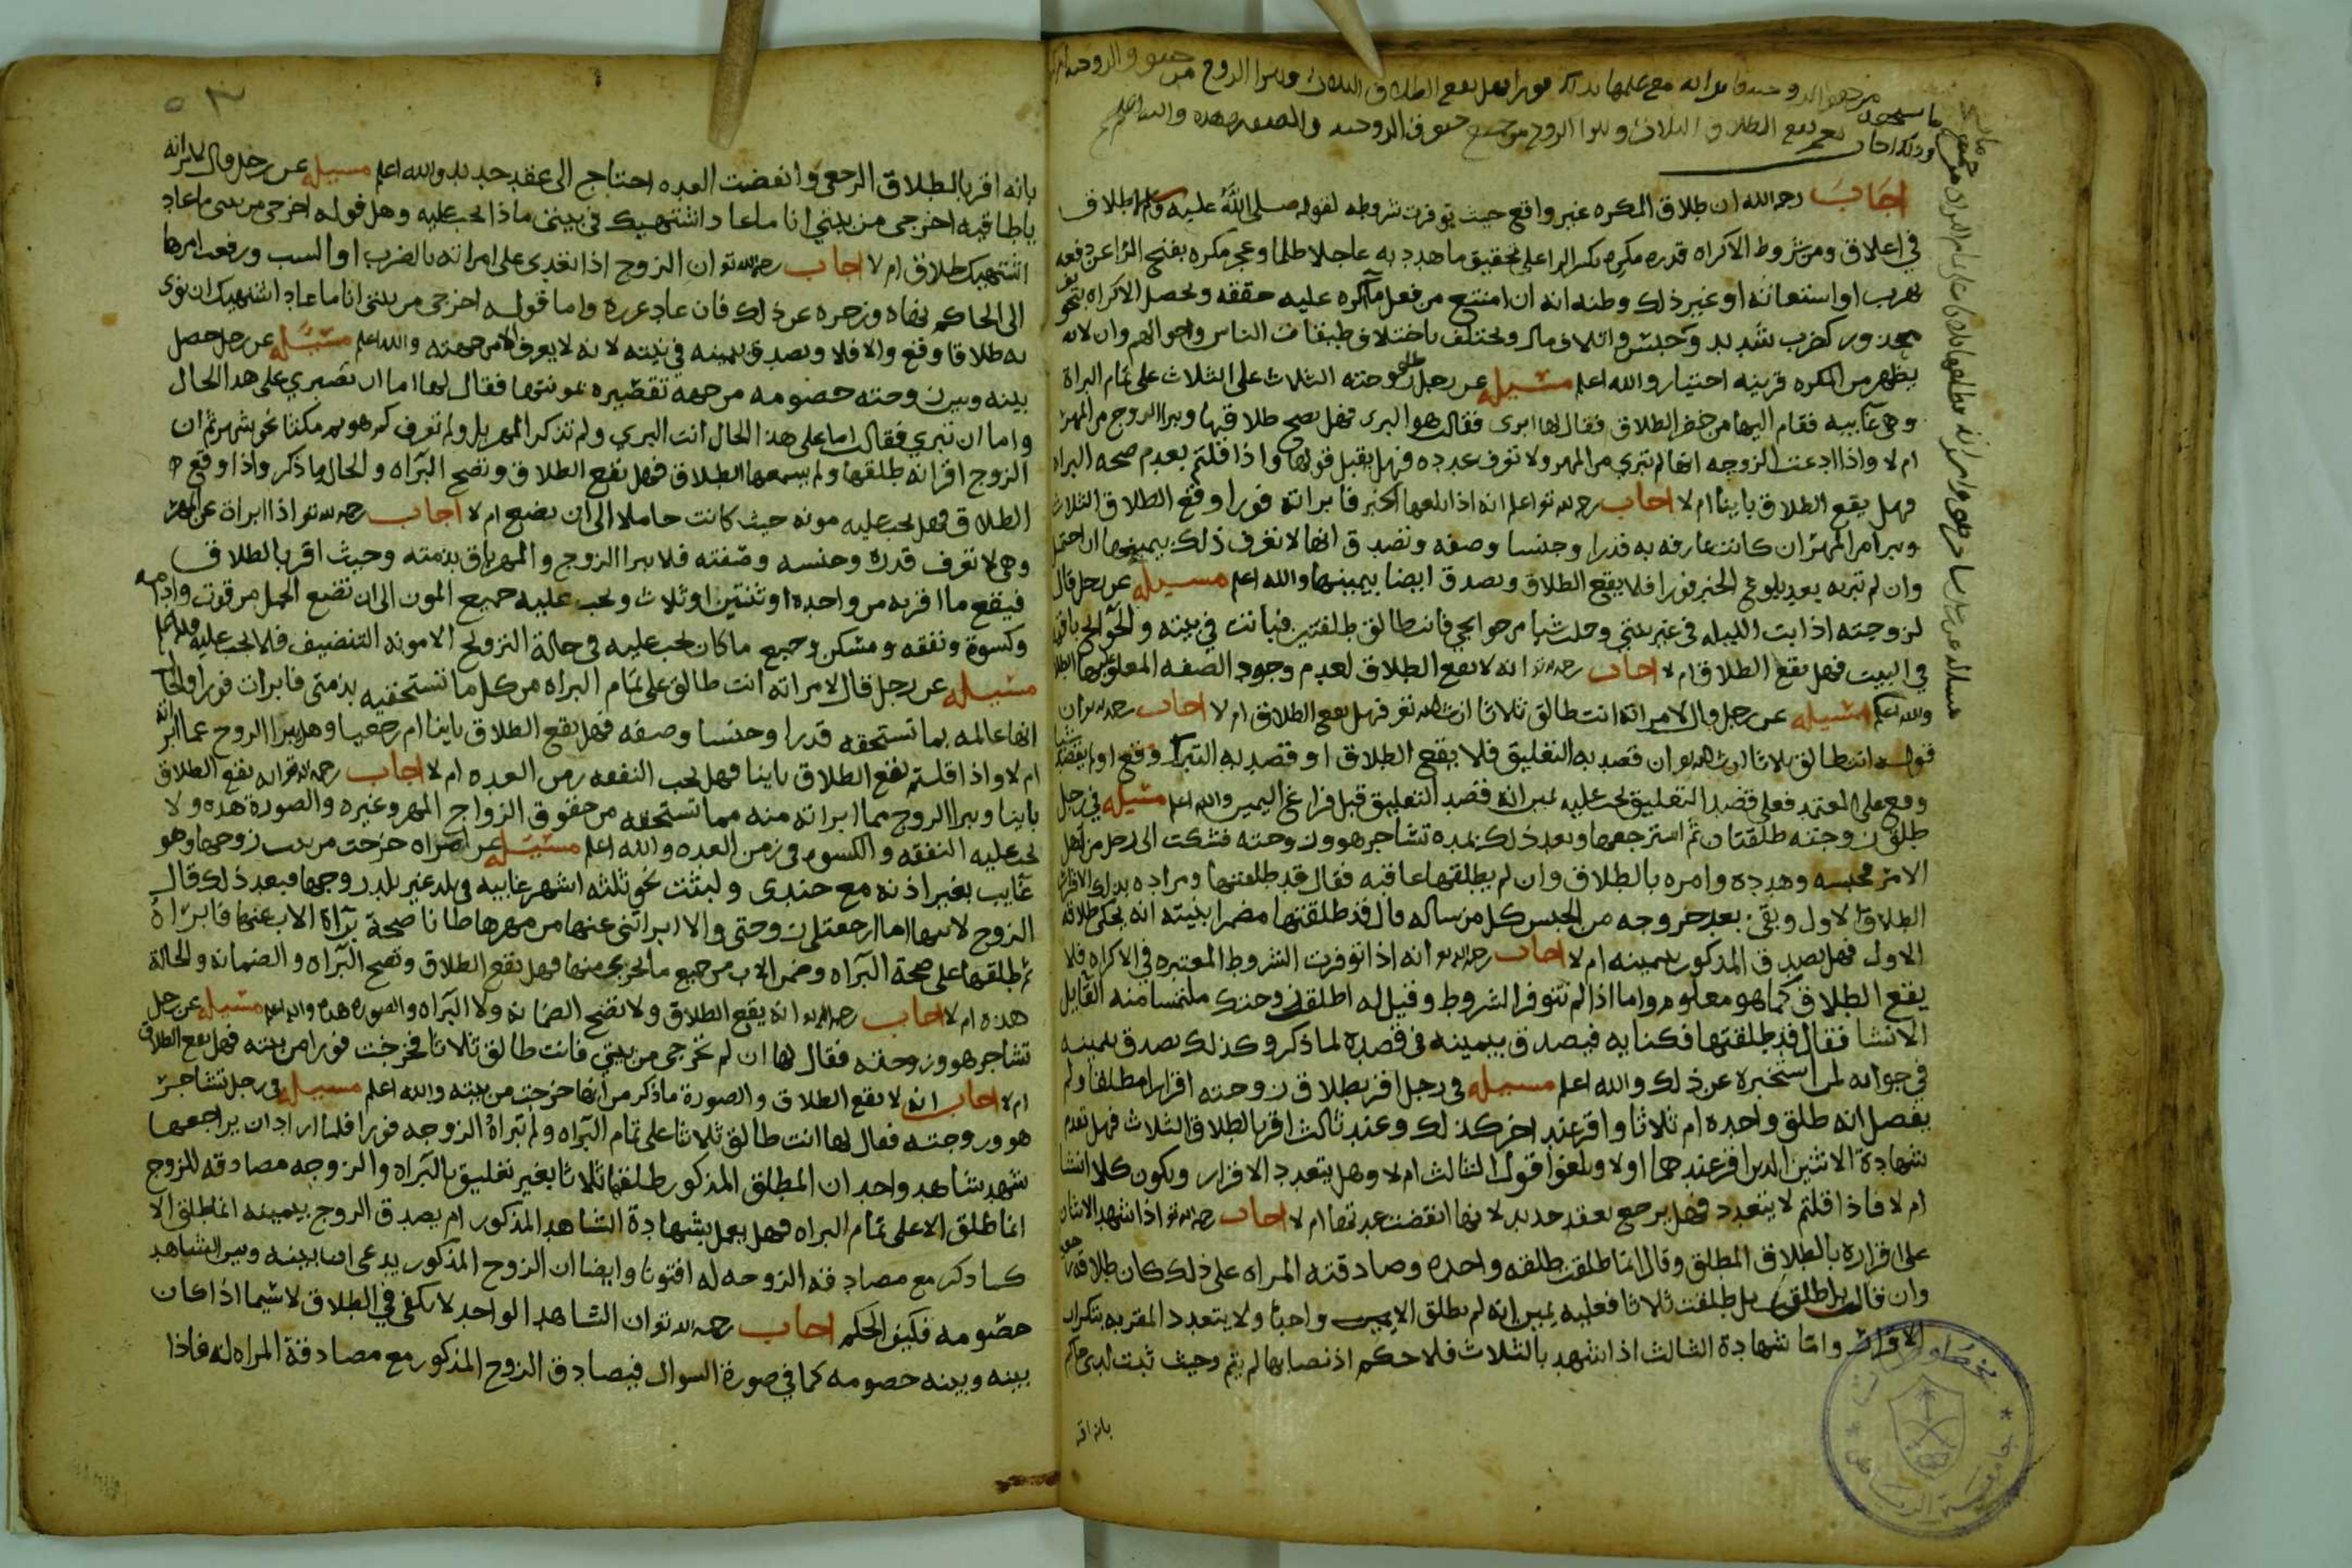 اجاب رحمه الله ان طلاق المكره غير واقع حيث توفرت شروطه لقوله صلى الله عليه وسلم لا طلاق
في اغلاق ومن شروط الاكراه قدره مكره بكسر الرا على تحقيق ما هدد به عاجلا ظلما وعجز مكره بفتح الرا عن دفعه
بهرب او استغاثه او غير ذلك وظنه انه ان امتنع من فعل ما اكره عليه حققه ويحصل الاكراه بتخويف
بمحذور كضرب شديد وحبس واتلاف مال ويختلف باختلاف طبقات الناس واحوالهم وان لا
يظهر من المكره قرينه اختيار والله اعلم مسيله عن رجل طلق زوجته الثلاث على الثلاث على تمام البراة
وهي غايبه فقام اليها من حضر الطلاق فقال لها ابرى فقالت هو البرى فهل يصح طلاقها ويبرا الزوج من المهر
ام لا واذا ادعت الزوجه انها لم تبري من المهر ولا تعرف عدده فهل يقبل قولها واذا قلتم بعدم صحه البراه
فهل يقع الطلاق باينا ام لا اجاب رحمه الله تع اعلم انه اذا بلغها الخبر فابراته فورا وقع الطلاق الثلاث
ويبرا من المهر ان كانت عارفه به قدرا وجنسا وصفه وتصدق انها لا تعرف ذلك بيمينها ان احتمل
وان لم تبره بعد بلوغ الخبر فورا فلا يقع الطلاق وتصدق ايضا بيمينها والله اعلم مسيله عن رجل قال
لزوجته اذا بت الليله في غير بيتي وحلت شيا من حوايجي فانت طالق طلقتين فباتت في بيته والحوايج باقيه
في البيت فهل يقع الطلاق ام لا اجاب رحمه الله انه لا يقع الطلاق لعدم وجود الصفه المعلق بها الطلاق
والله اعلم مسيله عن رجل قال لامراته انت طالق ثلاثا ان شا الله تع فهل يقع الطلاق ام لا اجاب رحمه الله تع ان
قوله انت طالق ثلاثا ان شا الله تع ان قصد به التعليق فلا يقع الطلاق او قصد به التبرك وقع او لم يقصد شيا
وقع على المعتمد فعلى قصد التعليق يجب عليه يمين انه قصد التعليق قبل فراغ اليمين والله اعلم مسيله في رجل
طلق زوجته طلقتان ثم استرجعها وبعد ذلك بمده تشاجر هو وزوجته فشكت الى رجل من اهل
الامر فحبسه وهدده وامره بالطلاق وان لم يطلقها عاقبه فقال قد طلقتها ومراده بذلك الاقرار
الطلاق الاول وبقي بعد خروجه من الحبس كل من ساله قال قد طلقتها مضمرا بنيته انه يحكي طلاقه
الاول فهل يصدق المذكور بيمينه ام لا اجاب رحمه الله تع انه اذا توفرت الشروط المعتبره في الاكراه فلا
يقع الطلاق كما هو معلوم واما اذا لم تتوفر الشروط وقيل له اطلقت زوجتك ملتمسا منه القايل
الانشا فقال قد طلقتها فكنايه فيصدق بيمينه في قصده لما ذكر وكذلك يصدق بيمينه
في جوابه لمن استخبره عن ذلك والله اعلم مسيله في رجل اقر بطلاق زوجته اقرارا مطلقا ولم
يفصل انه طلق واحده ام ثلاثا واقر عند اخر كذلك وعند ثالث اقر بالطلاق الثلاث فهل تقدم
شهادة الاثنين الذين اقر عندهما اولا ويلغوا قول الثالث ام لا وهل يتعدد الاقرار ويكون كلا انشا
ام لا فاذا قلتم لا يتعدد فهل يرجع بعقد جديد لانها انقضت عدتها ام لا اجاب رحمه الله تع اذا شهد الاثنان
على اقراره بالطلاق المطلق وقال انما طلقت طلقه واحده وصادقته المراه على ذلك كان طلاقه رجعيا
وان قالت بل طلقت ثلاثا فعليه يمين انه لم يطلق الا واحدا ولا يتعدد المقر به بتكرار
الاقرار واما شهادة الثالث اذا شهد بالثلاث فلا حكم اذ نصابها لم يتم وحيث ثبت لدى حاكم
بانه اقر
بانه اقر بالطلاق الرجعي وانقضت العده احتاج الى عقد جديد والله اعلم مسيله عن رجل قال لامراته
يا طاقيه اخرجي من بيتي انا ما عاد اشتهيك في بيتي ماذا يجب عليه وهل قوله اخرجي من بيتي ما عاد
اشتهيك طلاق ام لا اجاب رحمه الله تع ان الزوج اذا تعدى على امراته بالضرب او السب ورفعت امرها
الى الحاكم نهاه وزجره عن ذلك فان عاد عزره واما قوله اخرجي من بيتي انا ما عاد اشتهيك ان نوى
به طلاقا وقع والا فلا ويصدق بيمينه في نيته لانه لا يعرف الا من جهته والله اعلم مسيله عن رجل حصل
بينه وبين زوجته خصومه من جهه تقصيره بمونتها فقال لها اما ان تصبري على هذا الحال
واما ان تبري فقالت اما على هذا الحال انت البري ولم تذكر المهر بل ولم تعرف كم هو ثم مكثا نحو شهر ثم ان
الزوج اقر انه طلقها ولم يسمعها الطلاق فهل يقع الطلاق وتصح البراه والحال ما ذكر واذا وقع
الطلاق فهل يجب عليه مونه حيث كانت حاملا الى ان تضع ام لا اجاب رحمه الله تع اذا ابراة عن المهر
وهي لا تعرف قدره وجنسه وصفته فلا يبرا الزوج والمهر باق بذمته وحيث اقر بالطلاق
فيقع ما اقر به من واحده او ثنتين او ثلاث ويجب عليه جميع المون الى ان تضع الحمل من قوت وادامه
وكسوة ونفقه ومسكن وجميع ما كان يجب عليه في حالة التزويج الا مونه التنضيف فلا يجب عليه
مسيله عن رجل قال لامراته انت طالق على تمام البراه من كل ما تستحقيه بذمتي فابرات فورا والحال
انها عالمه بما تستحقه قدرا وجنسا وصفه فهل يقع الطلاق باينا ام رجعيا وهل يبرا الزوج عما ابراته
ام لا واذا قلتم يقع الطلاق باينا فهل يجب النفقه زمن العده ام لا اجاب رحمه الله تع انه يقع الطلاق
باينا ويبرا الزوج مما ابراته منه مما تستحقه من حقوق الزواج المهر وغيره والصورة هذه ولا
يجب عليه النفقه والكسوه في زمن العده والله اعلم مسيله عن امراه خرجت من بيت زوجها وهو
غايب بغير اذنه مع جندى ولبثت نحو ثلثه اشهر غايبه في بلد غير بلد زوجها فبعد ذلك قال
الزوج لابيها اما ارجعتلي زوجتي والا ابراتني عنها من مهرها ظانا صحة براة الاب عنها فابراه
ثم طلقها على صحة البراه وضمن الاب من جميع ما يجرى منها فهل يقع الطلاق وتصح البراه والضمانه والحالة
هذه ام لا اجاب رحمه الله تع انه يقع الطلاق ولا تصح الضمانه ولا البراه والصوره هذه والله اعلم مسيله عن رجل
تشاجر هو وزوجته فقال لها ان لم تخرجي من بيتي فانت طالق ثلاثا فخرجت فورا من بيته فهل يقع الطلاق
ام لا اجاب انه لا يقع الطلاق والصورة ما ذكر من انها خرجت من بيته والله اعلم مسيله في رجل تشاجر
هو وزوجته فقال لها انت طالق ثلاثا على تمام البراه ولم تبراه الزوجه فورا فلما اراد ان يراجعها
شهد شاهد واحد ان المطلق المذكور طلقها ثلاثا بغير تعليق بالبراه والزوجه مصادقه للزوج
انما طلق الا على تمام البراه فهل يعمل بشهادة الشاهد المذكور ام يصدق الزوج بيمينه انما طلق الا
كما ذكر مع مصادقة الزوجه له افتونا وايضا ان الزوج المذكور يدعى ان بينه وبين الشاهد
خصومه فكيف الحكم اجاب رحمه الله تع ان الشاهد الواحد لا يكفي في الطلاق لا سيما اذا كان
بينه وبينه خصومه كما في صورة السوال فيصادق الزوج المذكور مع مصادقة المراه له فاذا